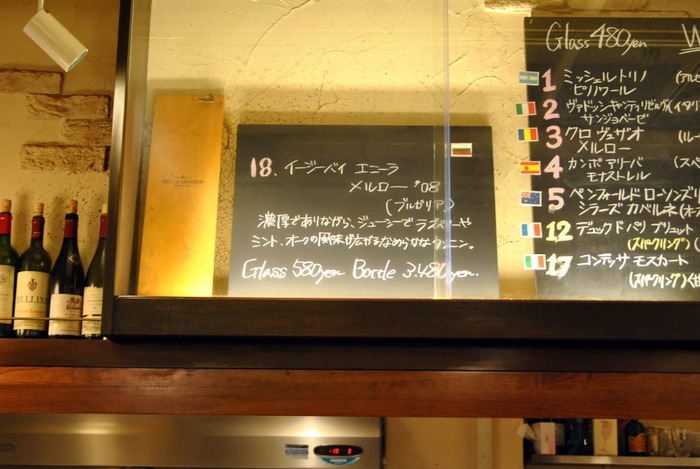 18. イージーベイ エニーラ
メルロー '08
(ブルガリア)
濃厚でありながら、ジューシーでラズベリーや
ミント、オークの風味が広がるなめらかなタンニン。
Glass 580yen. Bottle 3.480yen.
Glass 480yen W
1 ミッシェルトリノ (アルゼ
ピノノワール
2 サンジョベーゼ
3 クロ ヴェザオ (ル
メルロー
4 カンポ アリーバ (スペ
モナストレル
5 ペンフォールド ローソンズリ
シラーズ カベルネ (オー
12 デュック ド パリ ブリュット
(スパークリング)
17 コンテッサ モスカート
(スパークリング)
MOËT & CHANDON